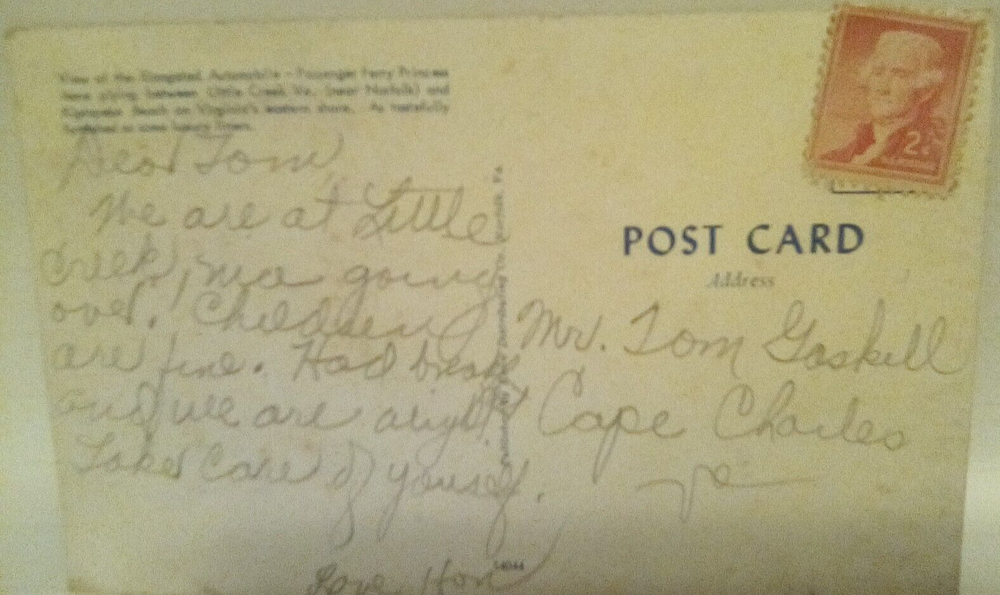 View of the Elongated Automobile - Passenger Ferry Princess
plying between Little Creek Va., (near Norfolk) and
Beach on Virginia's eastern shore. As tastefully
Dear Tom,
We are at Little
Creek, going
over. Children
are fine. Had
and we are aright
Take care of yourself.
Love, Hon
14044
2¢
POST CARD
Address
Mr. Tom Gaskill
Cape Charles
Va